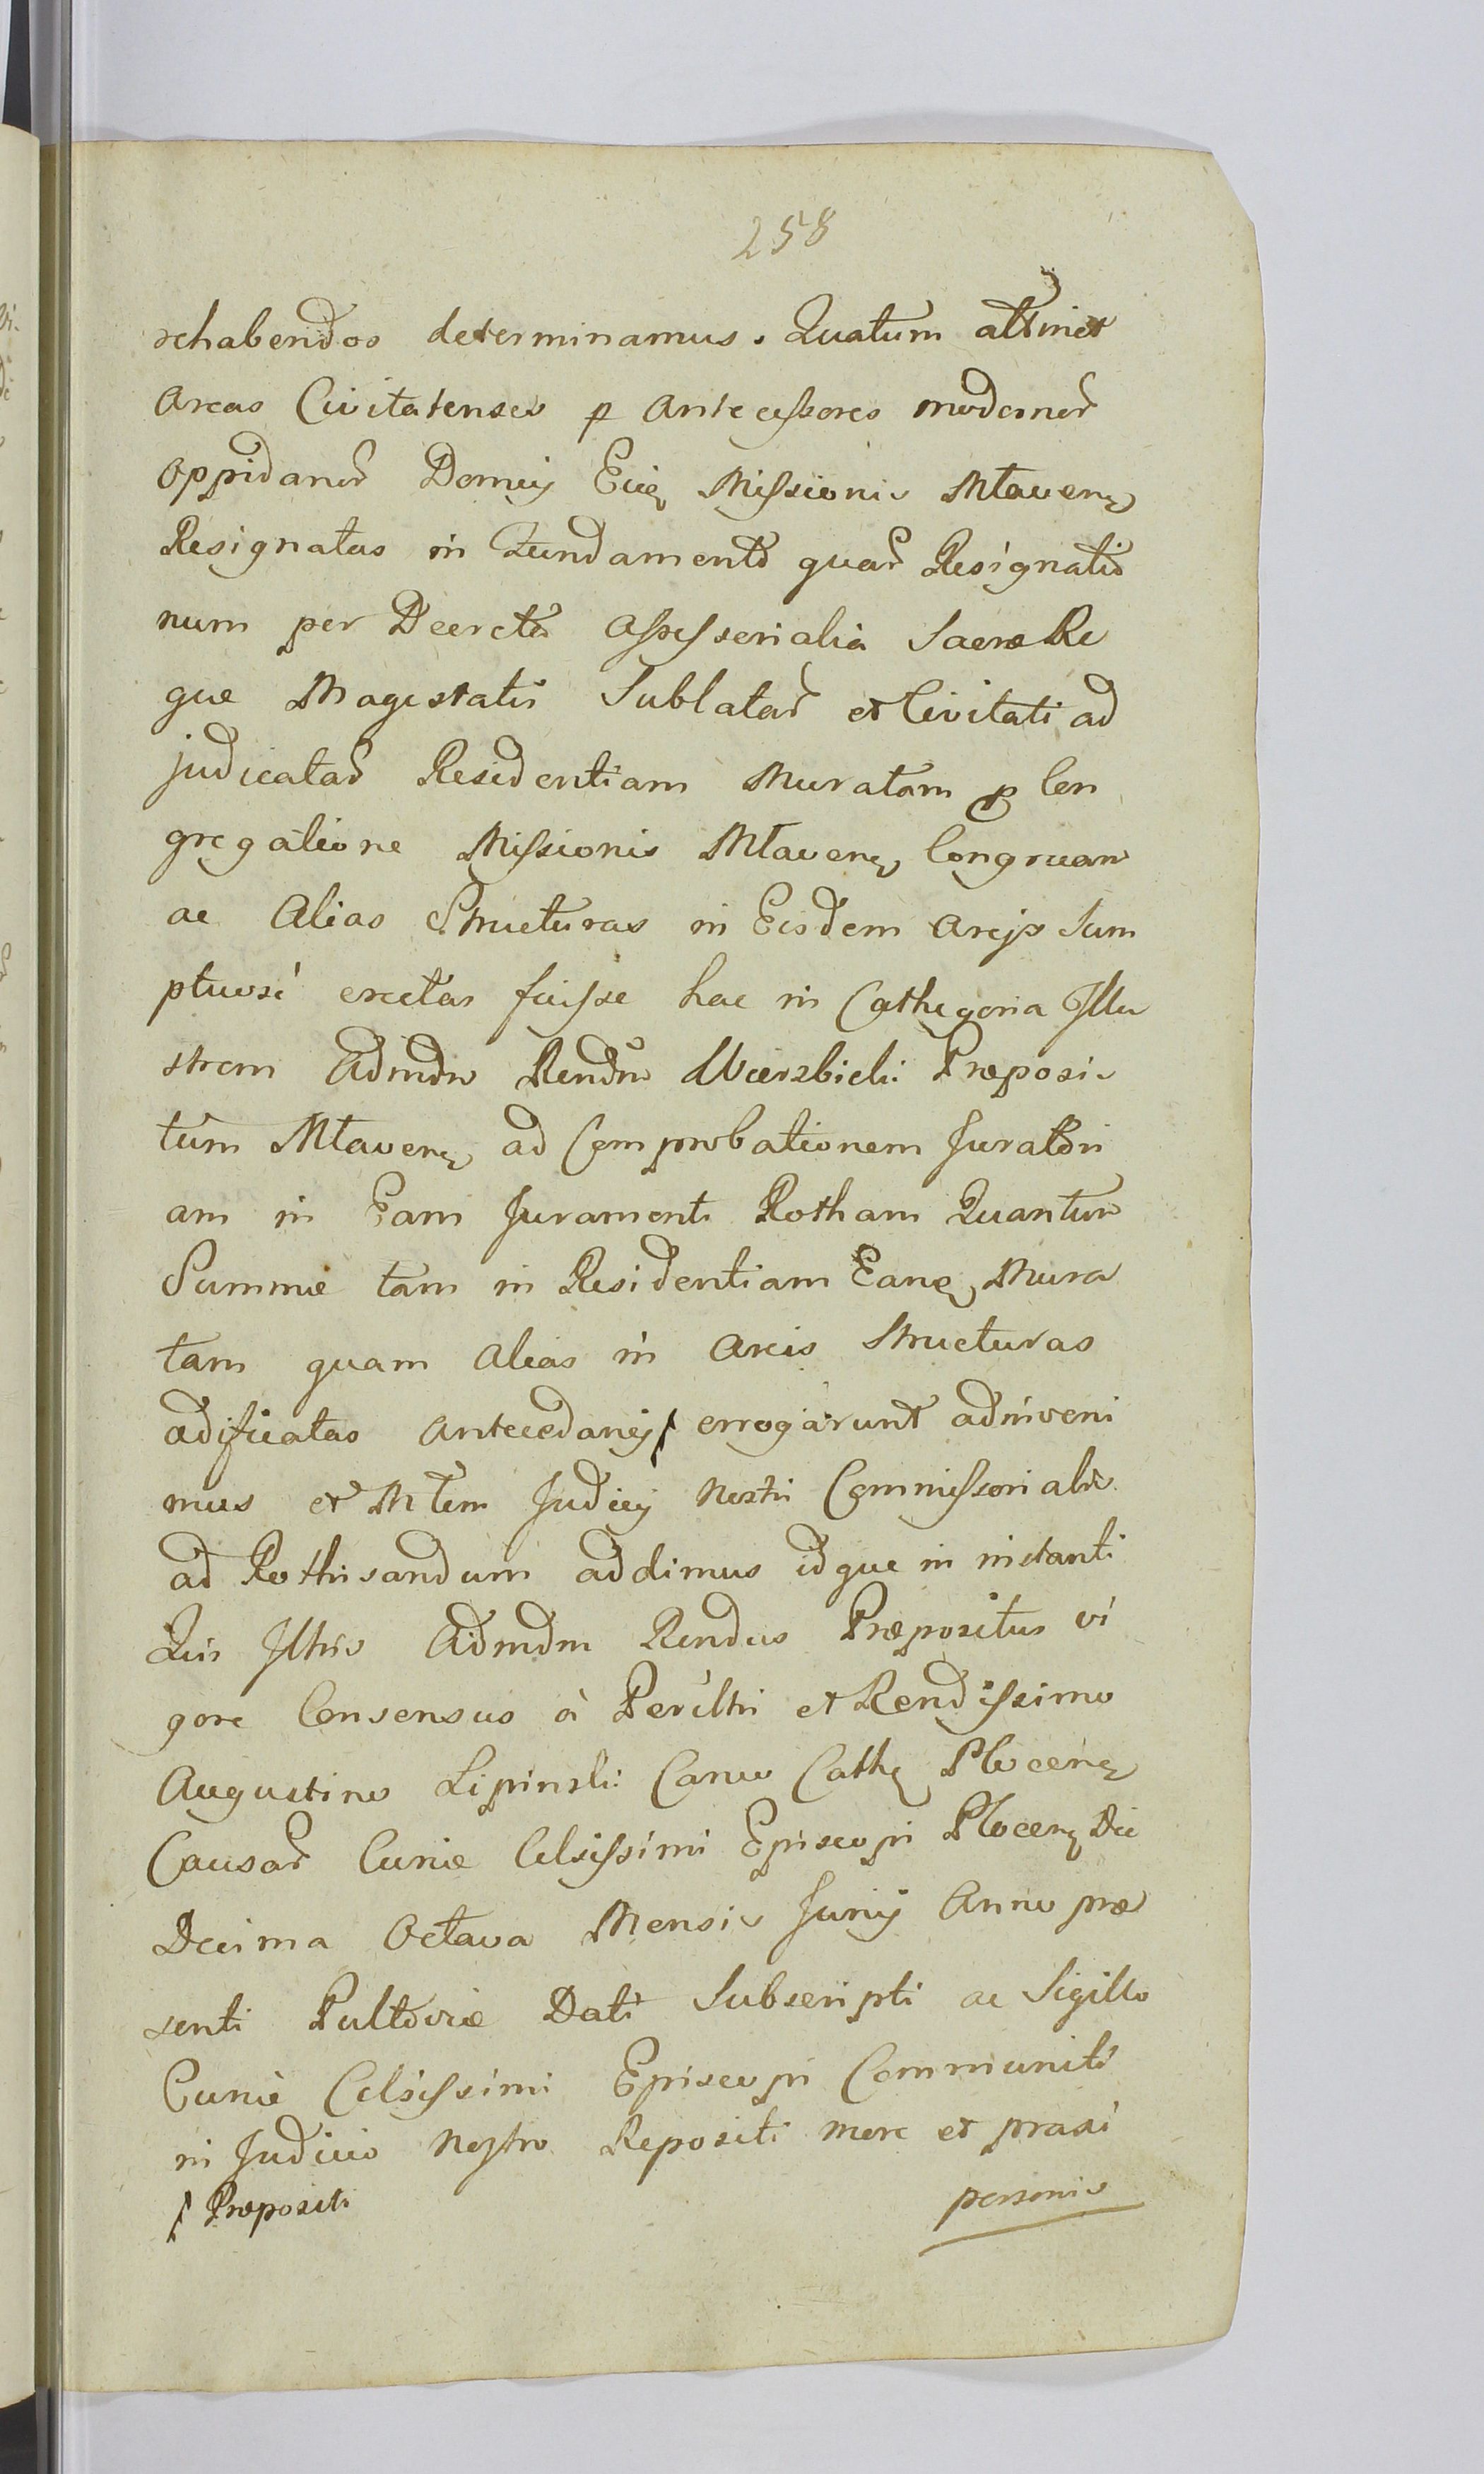 258
rehabendos determinamus. Quatum attinet
Areas Civitatenses p Antecessores modernor
Oppidanor Domuj Eid Missionis Mlaven
Resignatas in Fundamento quar Resignatio
num per Decreta Assessorialia Sacræ Re
giæ Magestatis Sublatar et Civitati ad
judicatar Residentiam Muratam p Con
gregatione Missionis Mlaven Congruam
ac Alias Structuras in Eisdem Areijs Sum
ptuosé erectas fuisse hac in Cathegoria Illu
strem Admdm Rendum Wierzbicki Præposi
tum Mlaven ad Comprobationem Juratori
am in Eam Juramenti Rotham Quantum
Summæ tam in Residentiam Eand Mura
tam quam Alias in Areis Structuras
ædificatas Antecedanej errogarunt adinveni
mus et Mtem Judicij Nostri Commissorialis
ad Rothisandum addimus idque in instanti
Quis Illtris Admdm Rendus Præpositus vi
gore Consensus à Perilltri et Rendissimo
Augustino Lipinski Canco Cathe Plocen
Causar Curiæ Celsissimi Episcopi Plocen Die
Decima Octava Mensis Junij Anno præ
senti Pultoviæ Dati Subscripti ac Sigillo
Curiæ Celsissimi Episcopi Communiti
in Judicio Nostro Repositi more et praxi
Præpositi personis